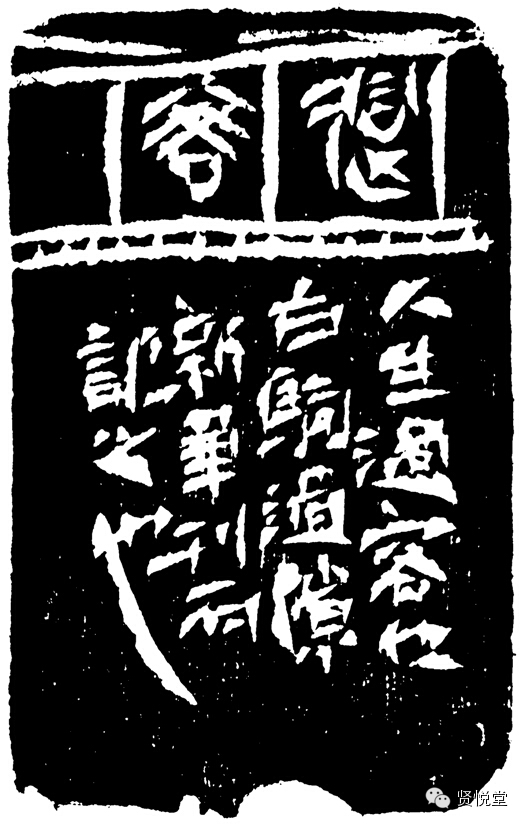 過客
人生過客也
白駒過隙
新畢刊而
記之也
贤悦堂